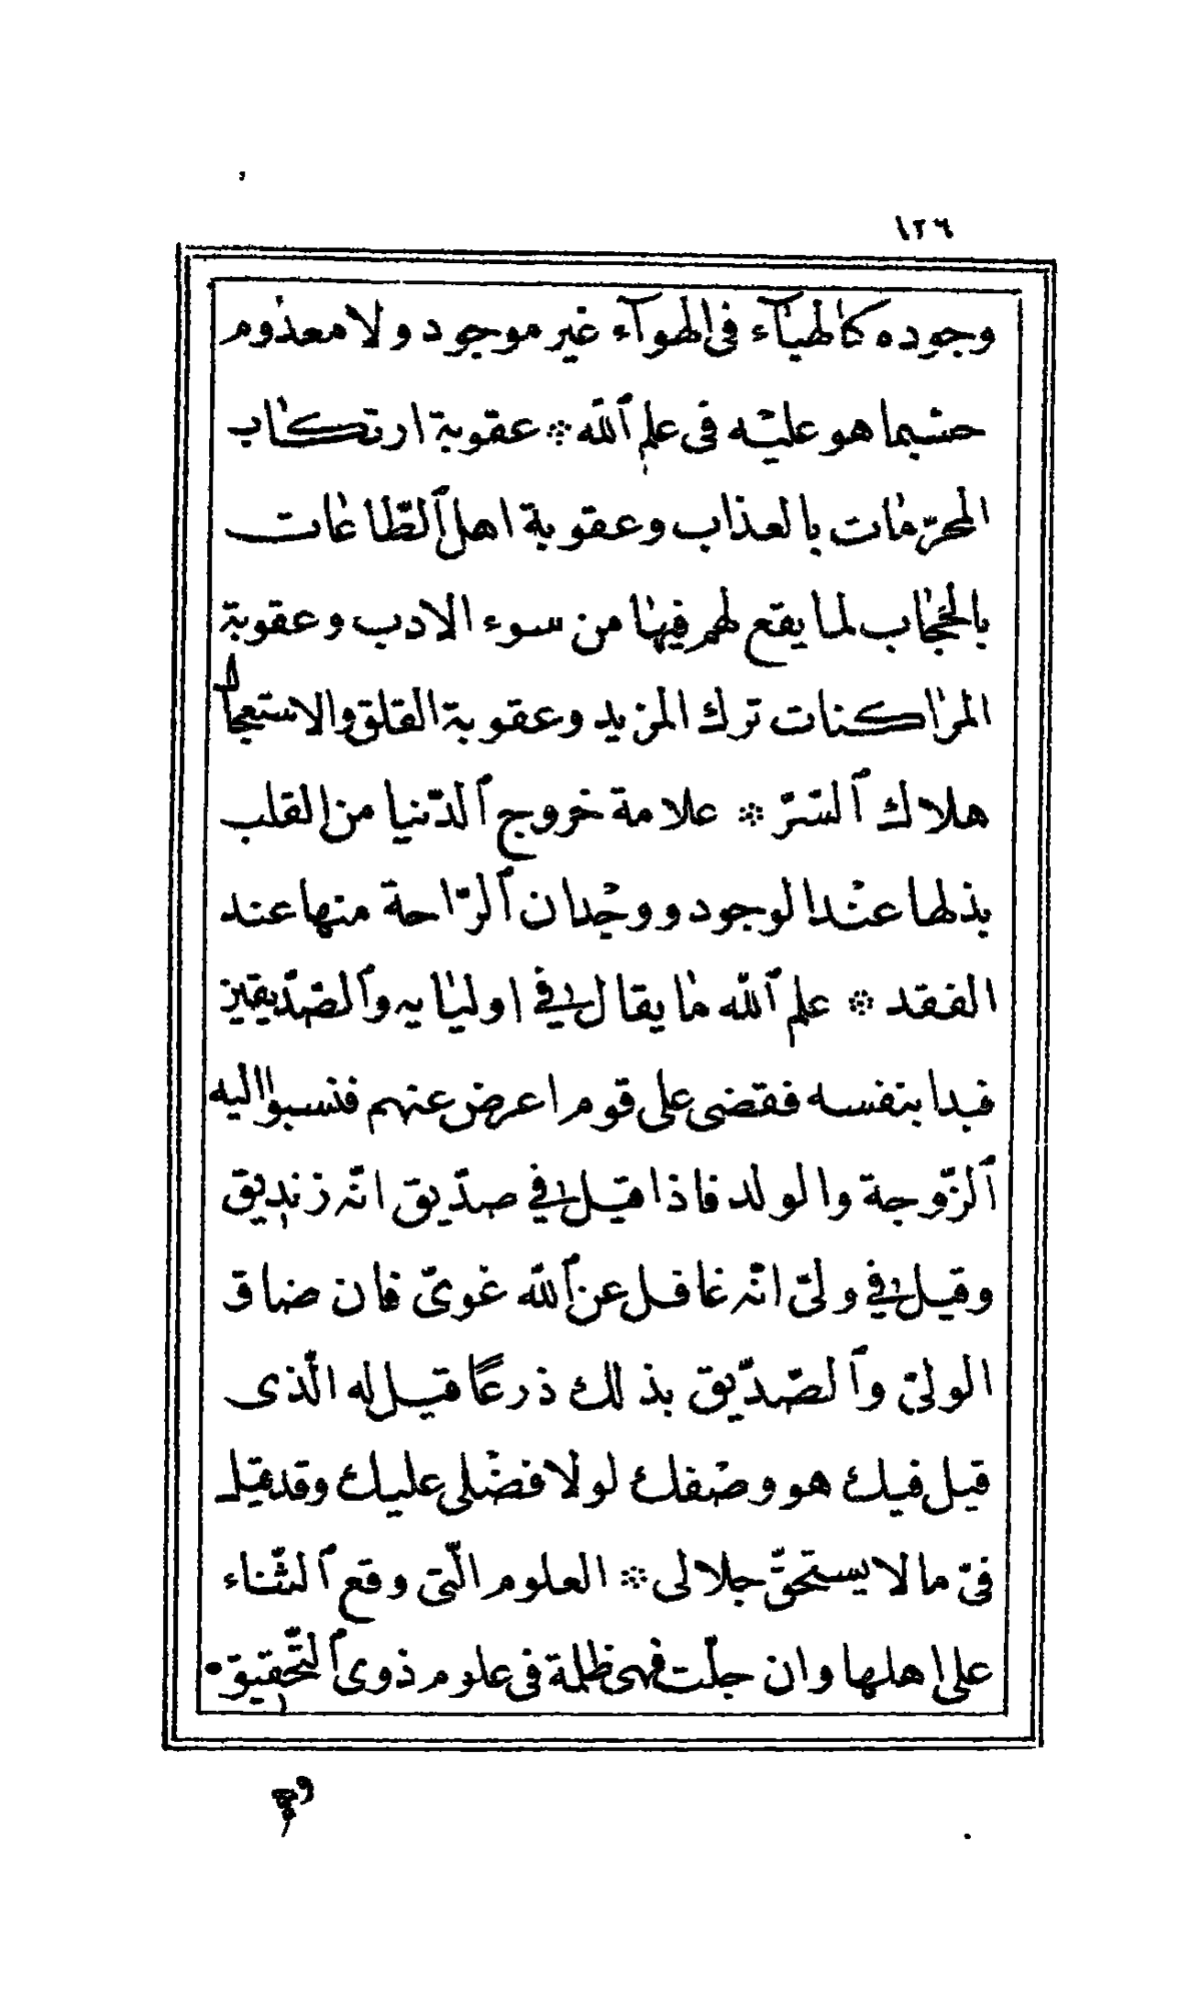 ١٢٦
وجوده كالهبآء فى الهوآء غير موجود ولا معدوم
حسبما هو عليه فى علم الله ؞ عقوبة ارتكاب
المحرّمات بالعذاب وعقوبة اهل الطّاعات
بالحجاب لما يقع لهم فيها من سوء الادب وعقوبة
المراكنات ترك المزيد وعقوبة القلق والاستعجال
هلاك السّرّ ؞ علامة خروج الدّنيا من القلب
بذلها عند الوجود ووجدان الرّاحة منها عند
الفقد ؞ علم الله ما يقال فى اوليايه والصّدّيقين
فبدا بنفسه فقضى على قوم اعرض عنهم فنسبوا اليه
الزّوجة والولد فاذا قيل فى صدّيق انّه زنديق
وقيل فى ولىّ انّه غافل عن الله غوىّ فان ضاق
الولىّ والصّدّيق بذلك ذرعًا قيل له الّذى
قيل فيك هو وصفك لولا فضلى عليك وقد قيل
فىّ ما لا يستحقّ جلالى ؞ العلوم الّتى وقع الثّناء
على اهلها وان جلّت فهى ظلمة فى علوم ذوى التّحقيق •